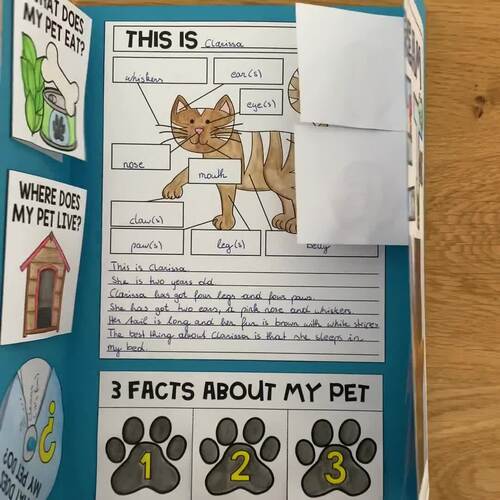 WHAT DOES
MY PET EAT?
WHERE DOES
MY PET LIVE?
MY PET DO?
THIS IS Clarissa
whiskers
ear(s)
eye(s)
nose
mouth
claw(s)
paw(s)
leg(s)
belly
This is Clarissa.
She is two years old.
Clarissa has got four legs and four paws.
She has got two ears, a pink nose and whiskers.
Her tail is long and her fur is brown with white stripes.
The best thing about Clarissa is that she sleeps in
my bed.
3 FACTS ABOUT MY PET
1
2
3